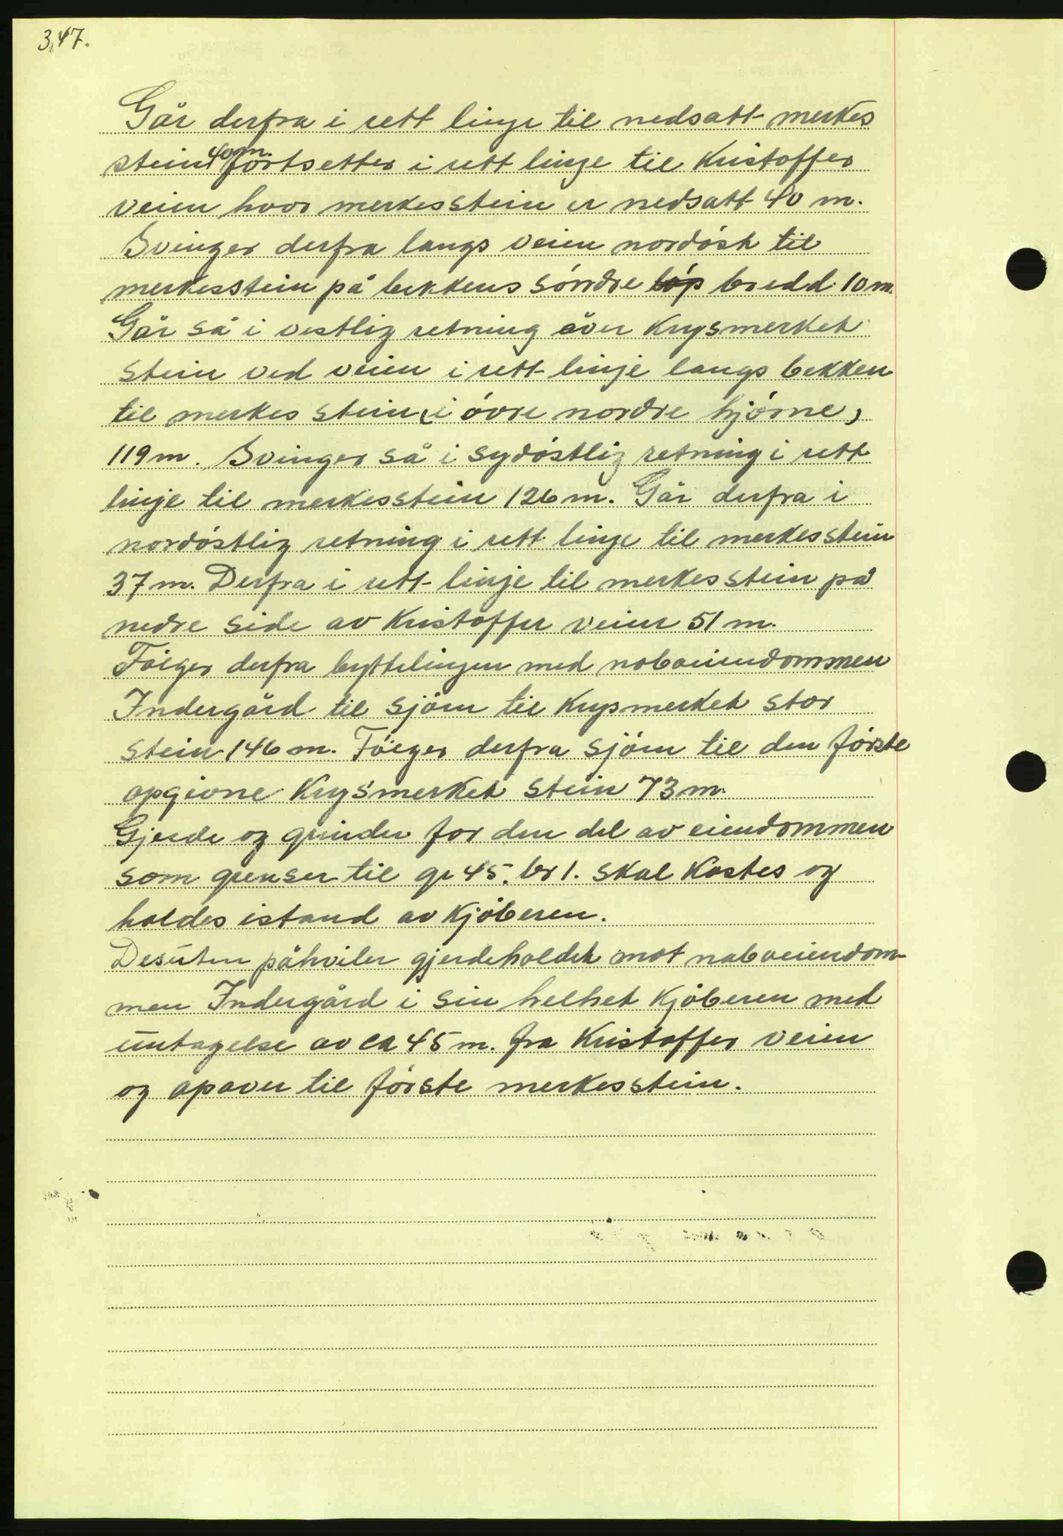 347.
Går derfra i rett linje til nedsatt merkes
stein 40 m. fortsetter i rett linje til Kristoffer
veien hvor merkesstein er nedsatt 40 m.
Svinger derfra langs veien nordøst til
merkesstein på bekkens søndre løp bredd 10 m.
Går så i vestlig retning över Krysmerket
stein ved veien i rett linje langs bekken
til merkes stein (i övre nordre hjørne,
119 m. Svinger så i sydøstlig retning i rett
linje til merkesstein 126 m. Går derfra i
nordøstlig retning i rett linje til merkesstein
37 m. Derfra i rett linje til merkesstein på
nedre side av Kristoffer veien 51 m.
Følger derfra byttelingen med naboeiendommen
Indergård til sjøen til Krysmerket stor
stein 146 m. Følger derfra sjøen til den første
opgivne Krysmerket stein 73 m.
Gjerde og grinder for den del av eiendommen
som grenser til gr 45. br 1. skal Kostes og
holdes istand av Kjøberen.
Desuten påhviler gjerdeholdet mot naboeiendom-
men Indergård i sin helhet Kjøberen med
untagelse av ca 45 m. fra Kristoffer veien
og opover til første merkesstein.